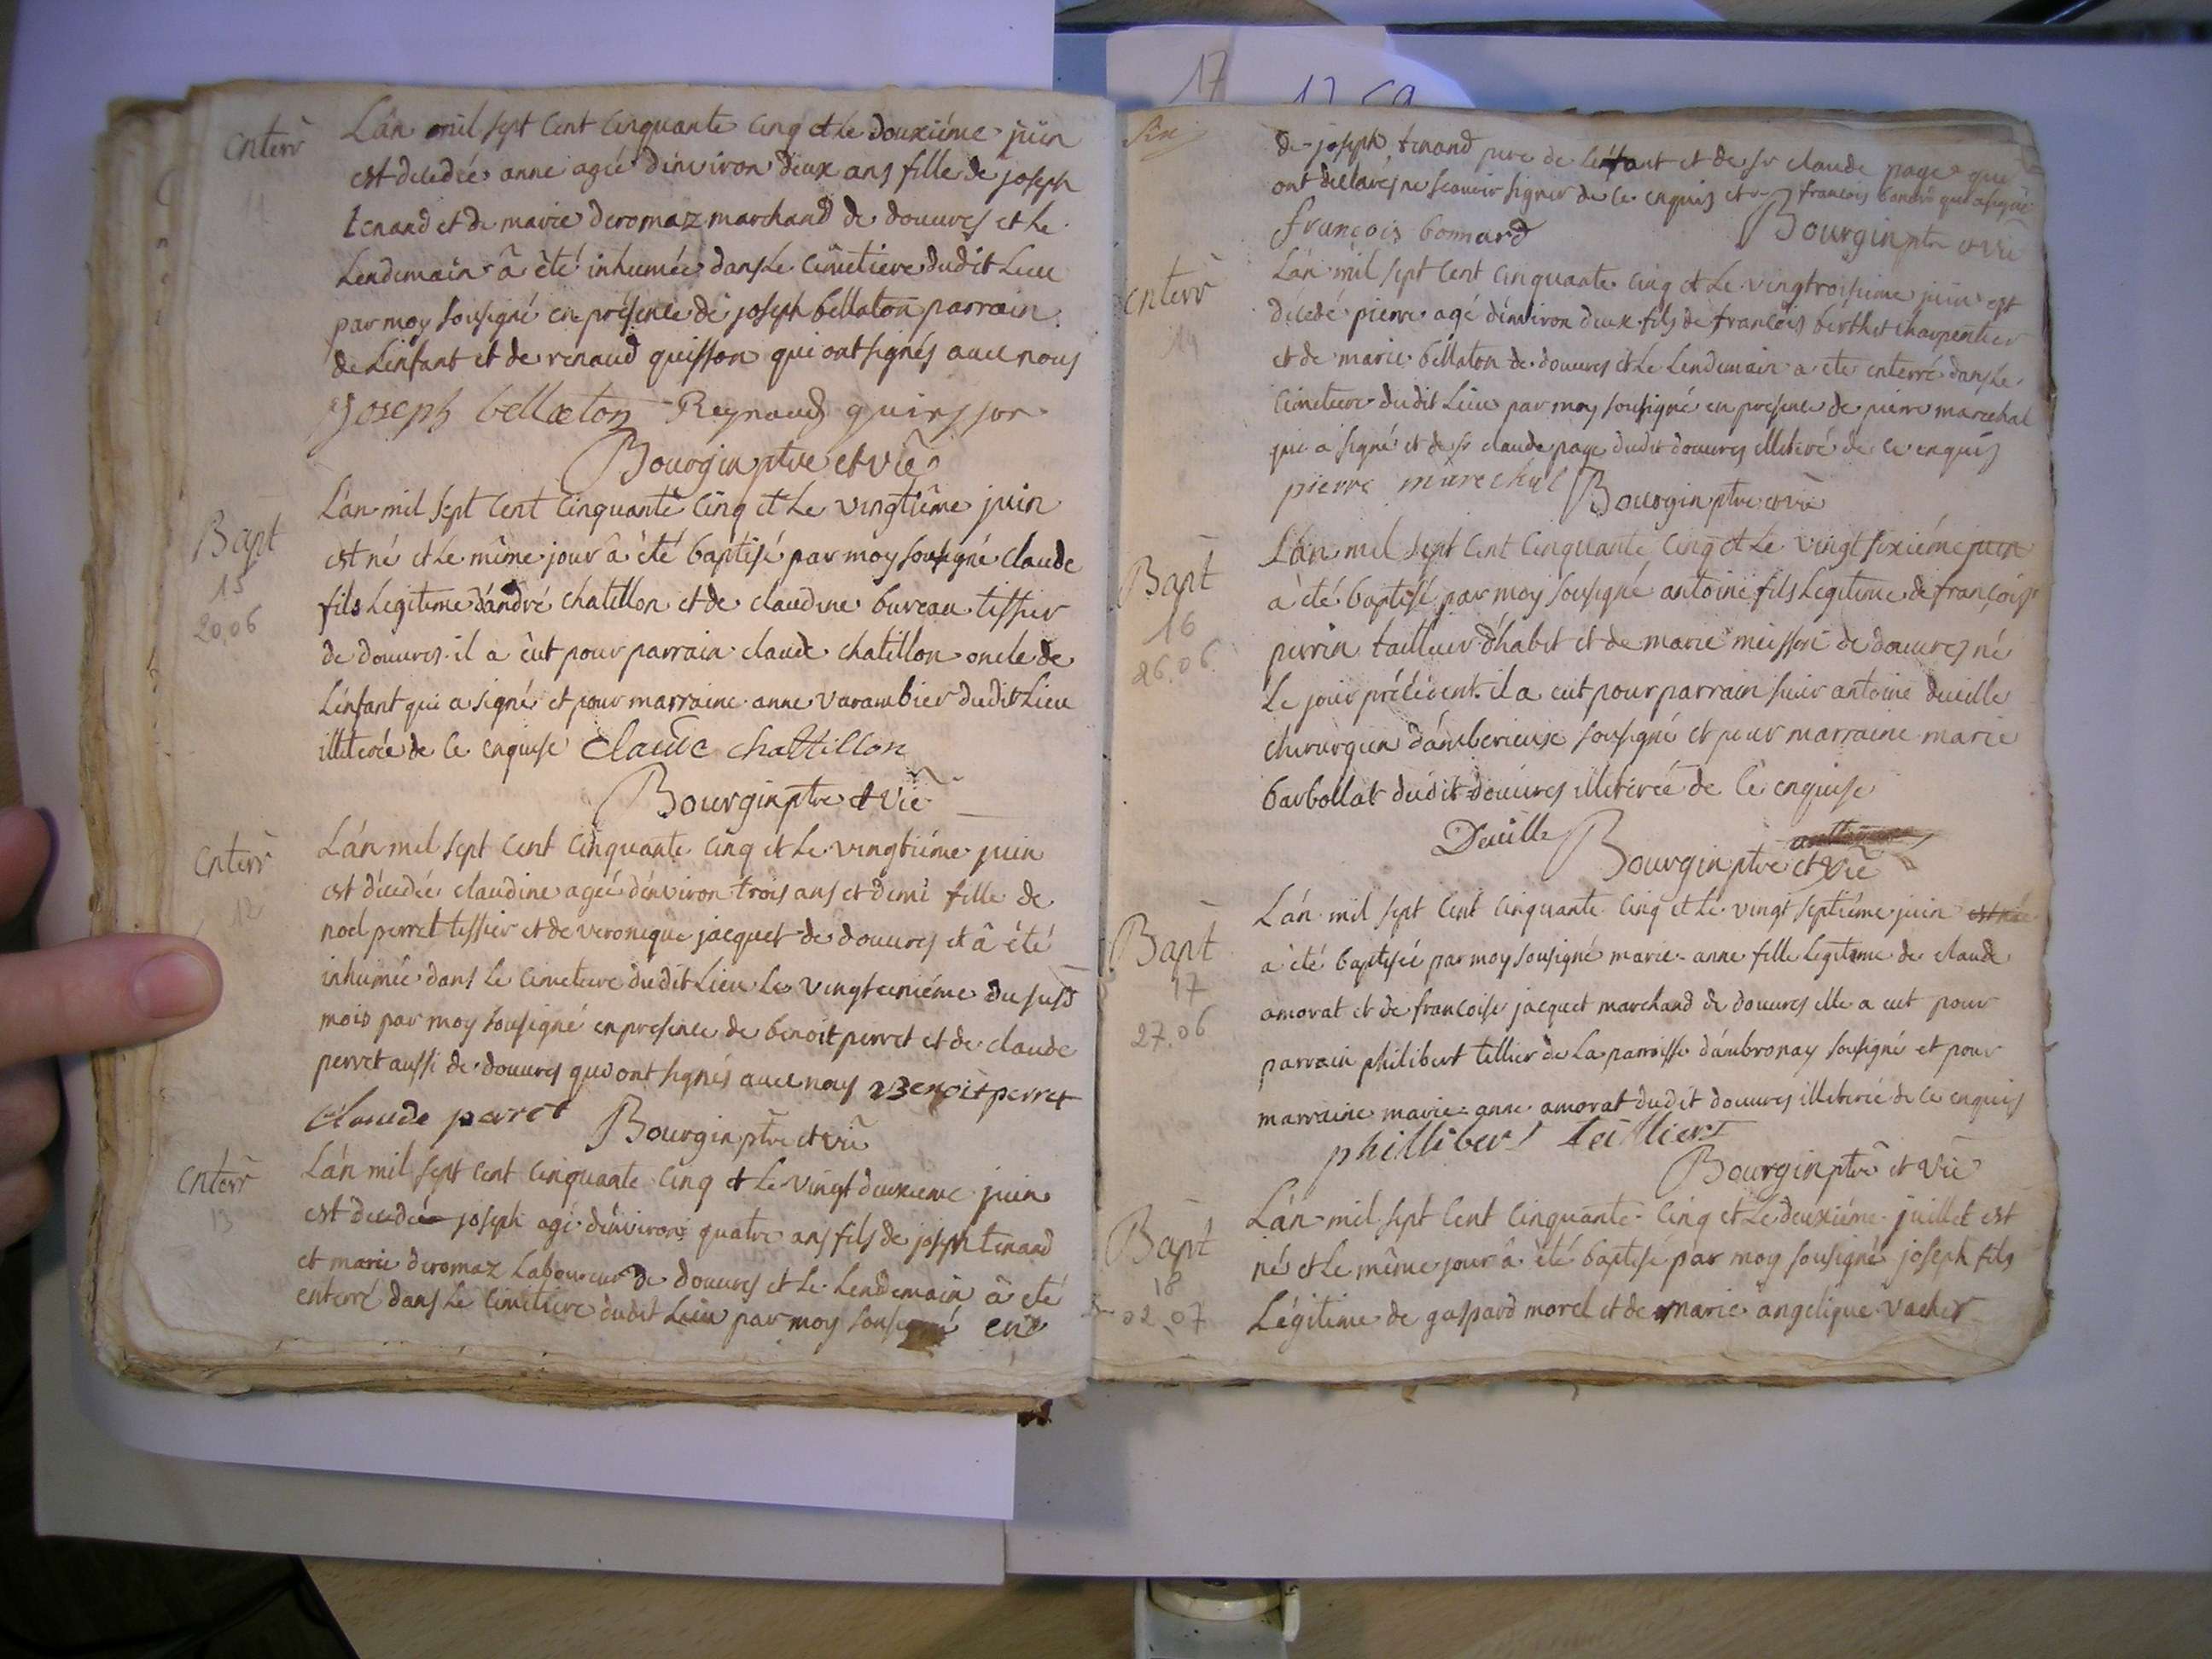 enterr
11
L'án mil sept Cent Cinquante Cinq et Le douxiéme juin
est decedée anne agée d'environ deux ans fille de joseph
tenand et de marie deromaz marchand de douures et Le
Lendemain â été inhumée dans Le Cimetiere dudit Lieu
par moy sousigné en présence de joseph bellaton parrain
de L'enfant et de renaud guisson qui ont signés avec nous
joseph bellaton Reynaud
Bourgin ptre et vic
Bapt
15
20.06
L'án mil sept Cent Cinquante Cinq et Le vingtiême juin
est né et Le même jour â été baptisé par moy sousigné claude
fils Legitime d'andré chatillon et de claudine bureau tissier
de douures il a êut pour parrain claude chatillon oncle de
L'enfant qui a signé et pour marraine anne varambier dudit Lieu
illiterée de Ce enquise Claude chattillon
Bourgin ptre et vic
enterr
12
L'án mil sept Cent Cinquante Cinq et Le vingtiéme juin
est décedée claudine agée d'environ trois ans et demi fille de
noel perret tissier et de veronique jacquet de douures et â été
inhumée dans Le Cimetiere dudit Lieu Le vingt uniéme du susd
mois par moy sousigné en presence de benoit perret et de claude
perret aussi de douures qui ont signés avec nous Benoit perret
Claude perret Bourgin ptre et vic
enterr
13
L'án mil sept Cent Cinquante Cinq et Le vingt deuxieme juin
est decedé joseph agé d'environ quatre ans fils de joseph tenand
et marie deromaz Laboureur de douures et Le Lendemain â eté
enterré dans Le Cimetiere dudit Lieu par moy sousigné en
17
de joseph tenand pere de L'enfant et de sr claude page qui
ont declarés ne scavoir signer de Ce enquis et françois bonard qui a signé
françois bonnard Bourgin ptre et vic
enterr
14
L'án mil sept Cent Cinquante Cinq et Le vingtroisieme juin est
décedé pierre agé d'environ deux fils de françois berthet charpentier
et de marie bellaton de douures et Le Lendemain a ete enterré dans Le
Cimetiere dudit Lieu par moy sousigné en presence de pierre marechal
qui a signé et de sr claude page dudit douures illiteré de Ce enquis
pierre marechal Bourgin ptre et vic
Bapt
16
26.06
L'án mil sept Cent Cinquante Cinq et Le vingt sixiéme juin
a été baptisé par moy sousigné antoine fils Legitime de françois
perrin tailleur d'habit et de marie meisson de douures né
Le jour précédent. il a eut pour parrain sieur antoine deville
chirurgien d'ámberieux sousigné et pour marraine marie
barbollat dudit douures illiterée de Ce enquise
Deville
Bourgin ptre et vic
Bapt
17
27.06
L'án mil sept Cent Cinquante Cinq et Le vingt septiéme juin est née
a été baptisée par moy sousigné marie-anne fille Legitime de claude
amorat et de françoise jacquet marchand de douures elle a eut pour
parrain philibert tellier de La parroisse d'ámbronay sousigné et pour
marraine marie-anne amorat dudit douures illiterée de Ce enquis
phillibert
Bourgin ptre et vic
Bapt
18
02.07
L'án mil sept Cent Cinquante Cinq et Le deuxiéme juillet est
né et Le même jour â été baptisé par moy sousigné joseph fils
Légitime de gaspard morel et de marie angelique vacher